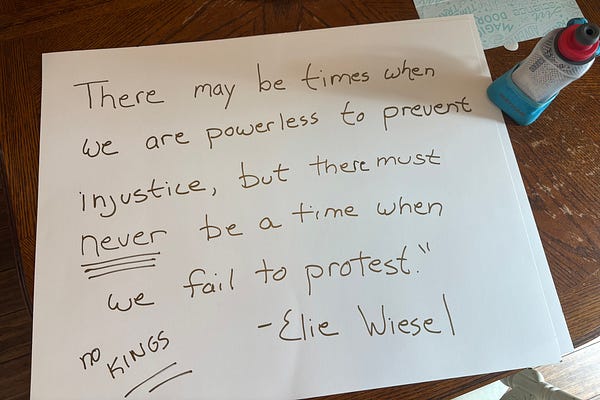 There may be times when
we are powerless to prevent
injustice, but there must
never be a time when
we fail to protest."
-Elie Wiesel
no KINGS